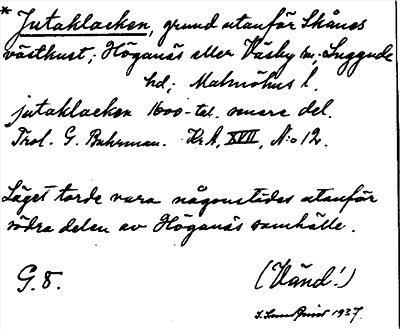 * Jutaklacken, grund utanför Skånes
västkust; Höganäs eller Väsby sn; Luggude
hd; Malmöhus l.
jutaklacken 1600-tal. senare del.
Trol. G. Buhrman. Kr A, XVII, N:o 12.
Läget torde vara någonstädes utanför
södra delen av Höganäs samhälle.
G. 8. (Vänd!)
1937.